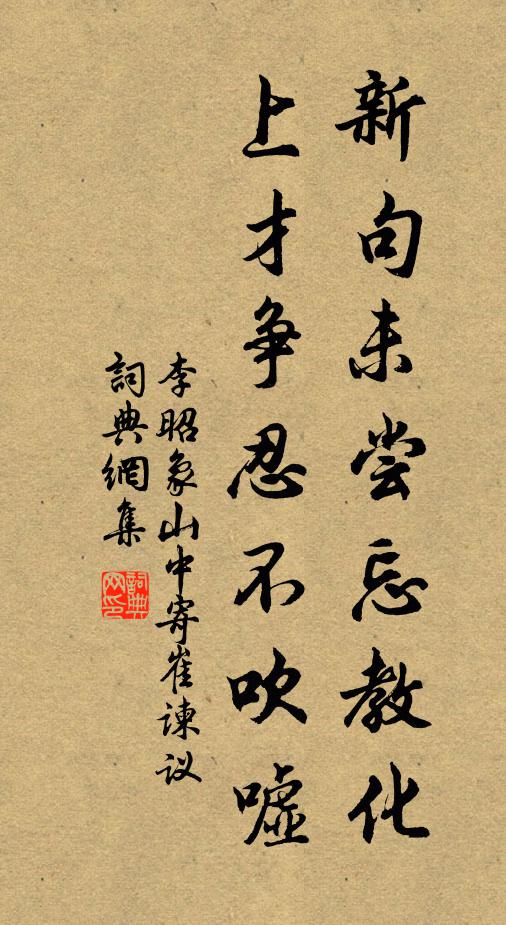 新句未尝忘教化
上才争忍不吹嘘
李昭象山中寄崔谏议
詞典網集
詞典网印